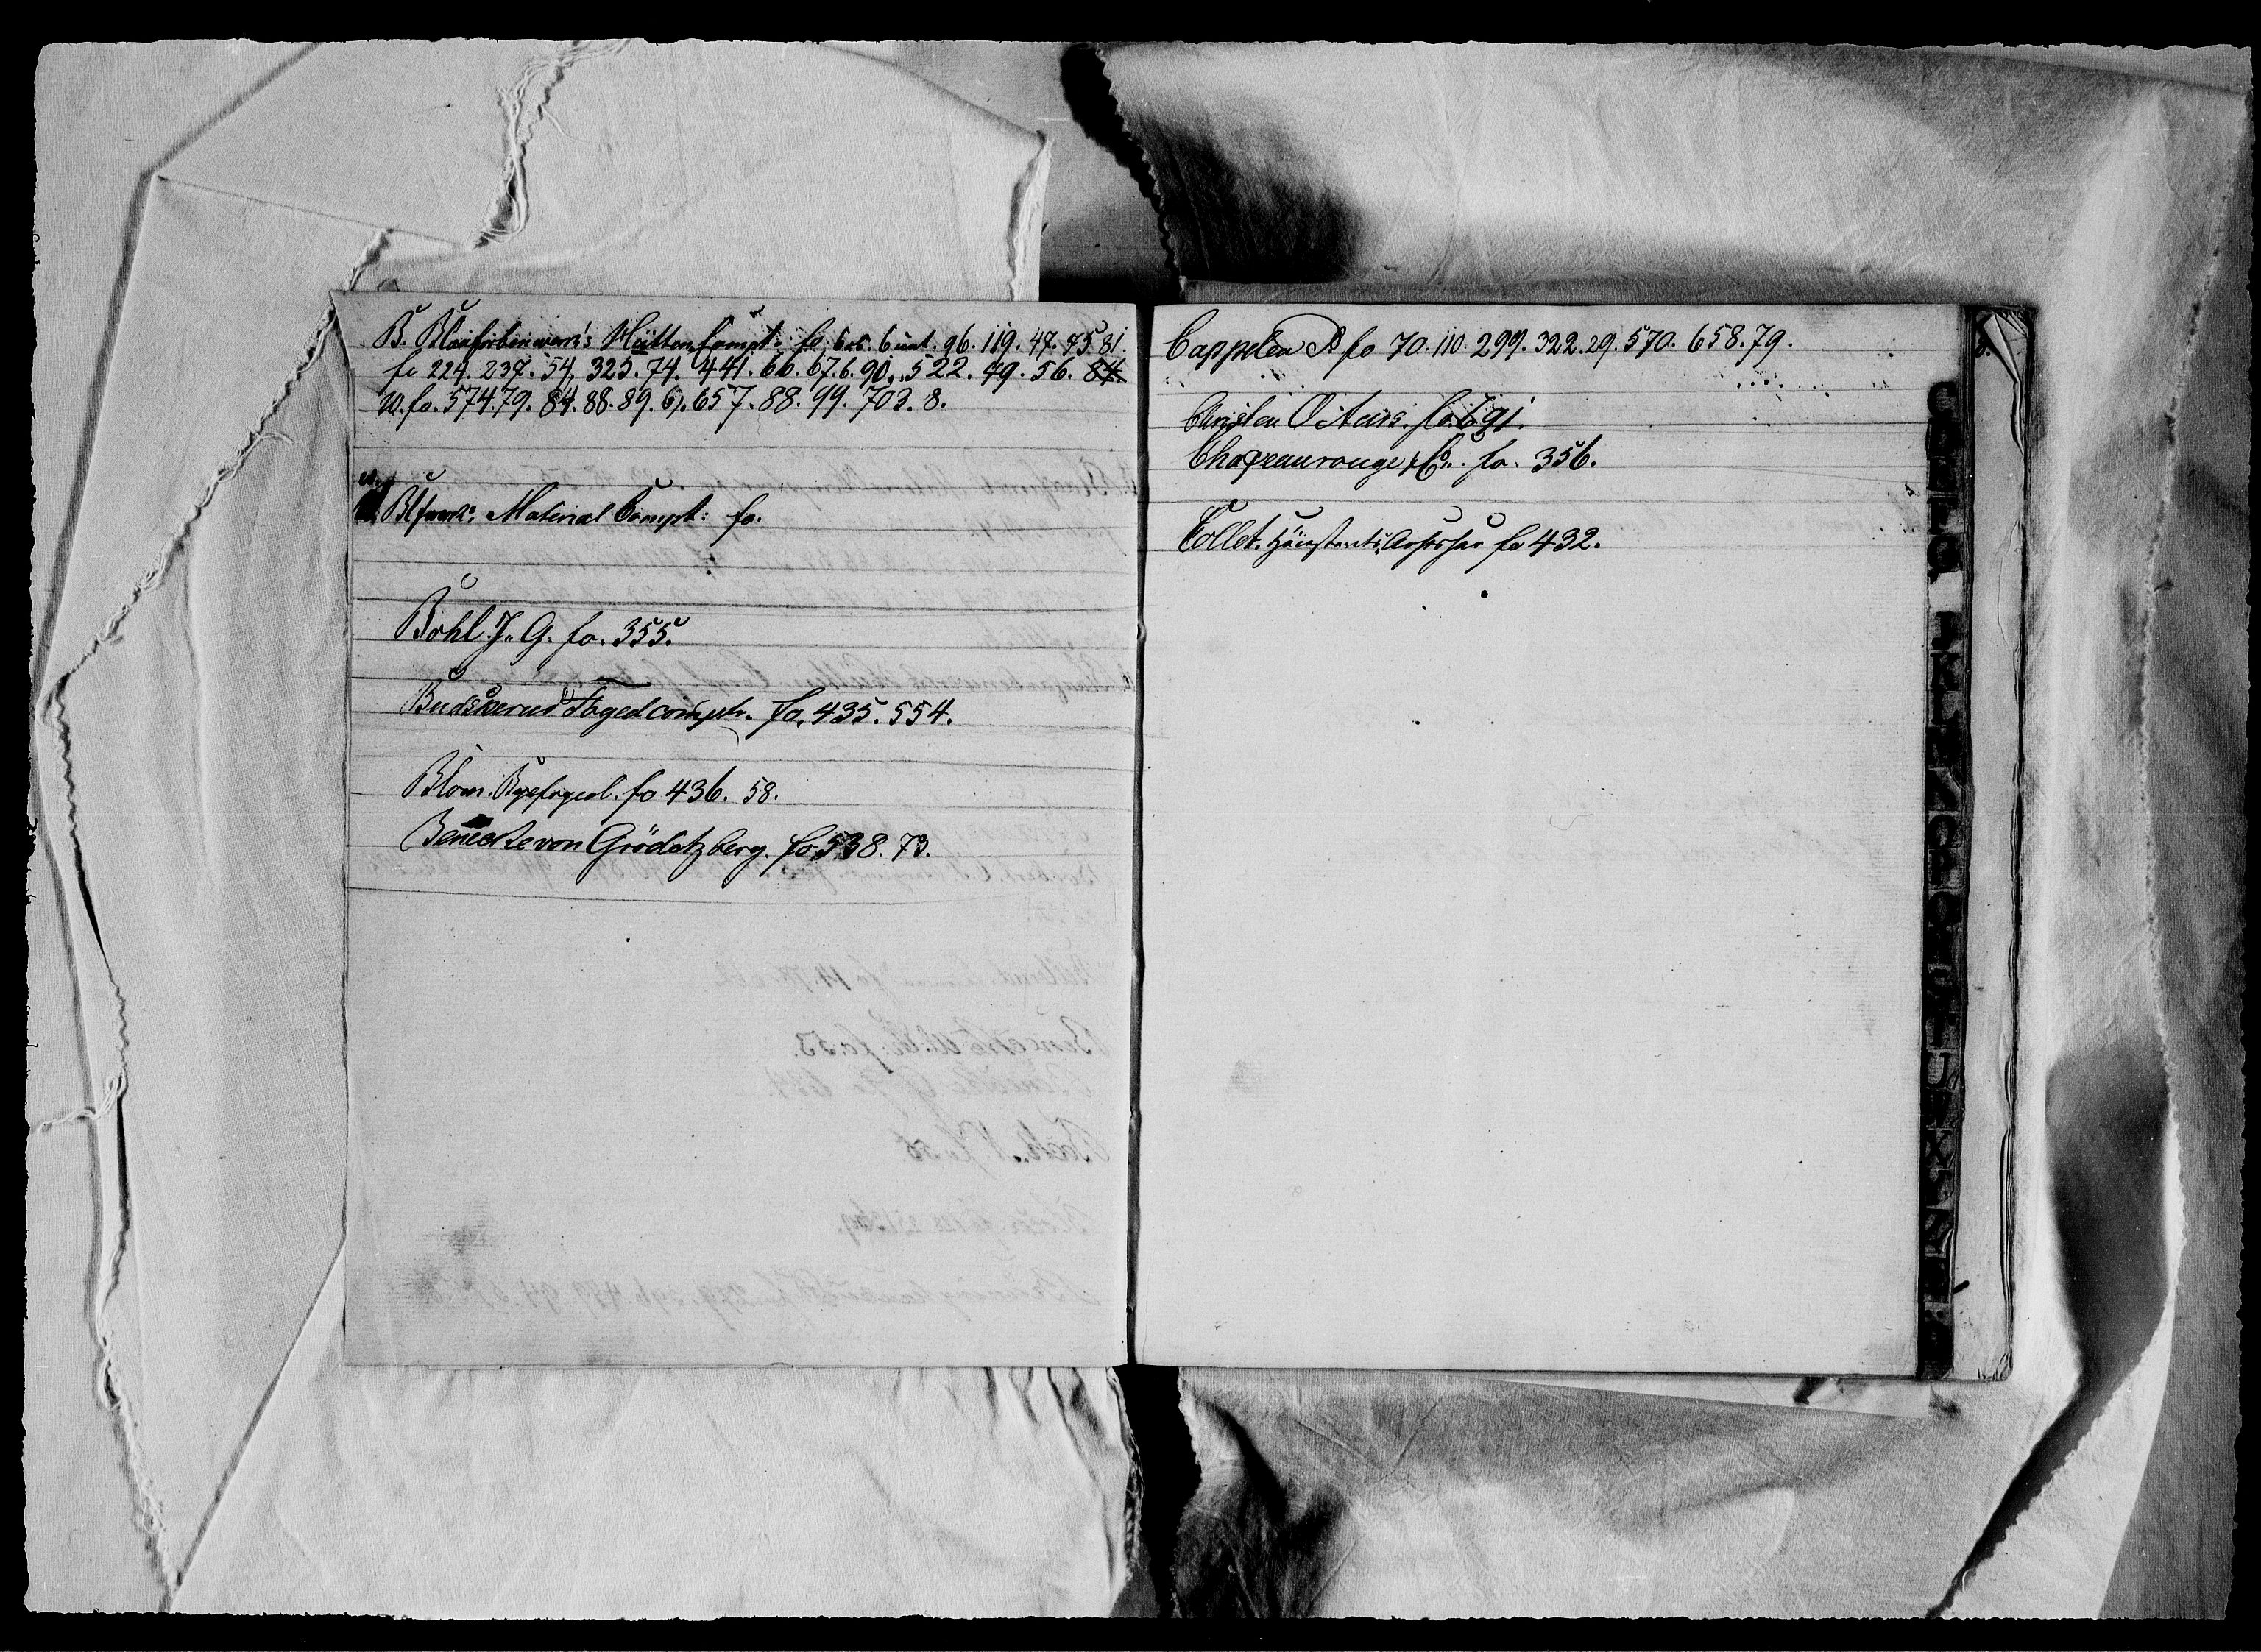 B. Blaafarbenwerk's Hütten Compt. fo. 96. 119. 47. 75. 81.
fo 224. 237. 54. 323. 74. 441. 66. 67. 6. 90. 522. 49. 56. 84.
fo. 574. 79. 84. 88. 89. 657. 88. 99. 703. 8.
Blfwerk: Material Compt: fo.
Bohl J. G. fo. 355.
Budskerud Foged compt. fo. 435. 554.
Blom. Byefoged. fo 436. 58.
Benecke von Gröditzberg. fo. 538. 73.
Cappelen D fo 70. 110. 299. 322. 29. 570. 658. 79.
Christen fo. 691.
Chapeaurouge & Co. fo. 356.
Collet. Assessor fo 432.